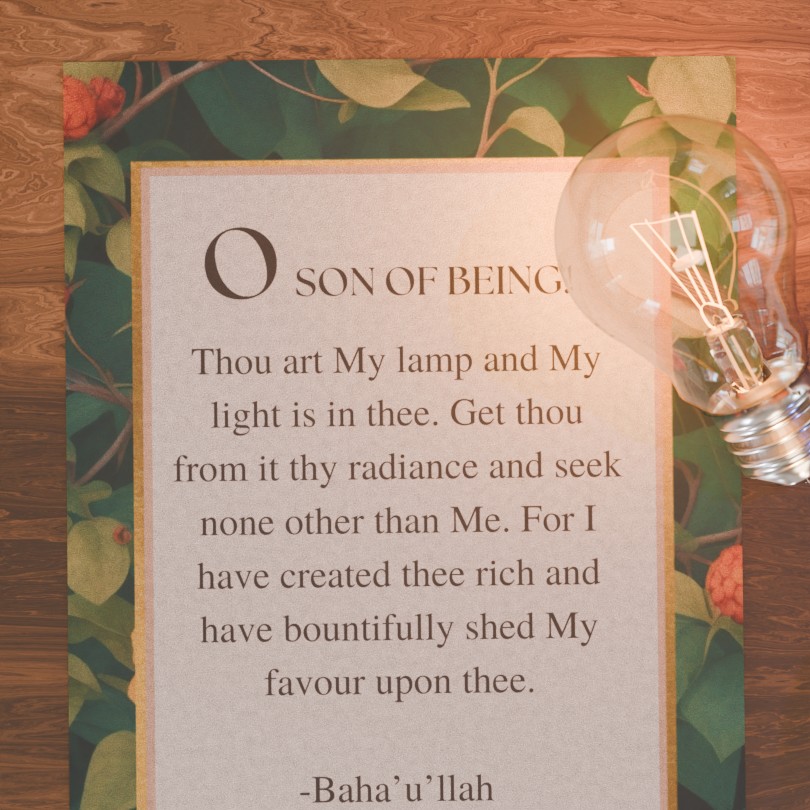 O SON OF BEING!
Thou art My lamp and My
light is in thee. Get thou
from it thy radiance and seek
none other than Me. For I
have created thee rich and
have bountifully shed My
favour upon thee.
-Baha’u’llah